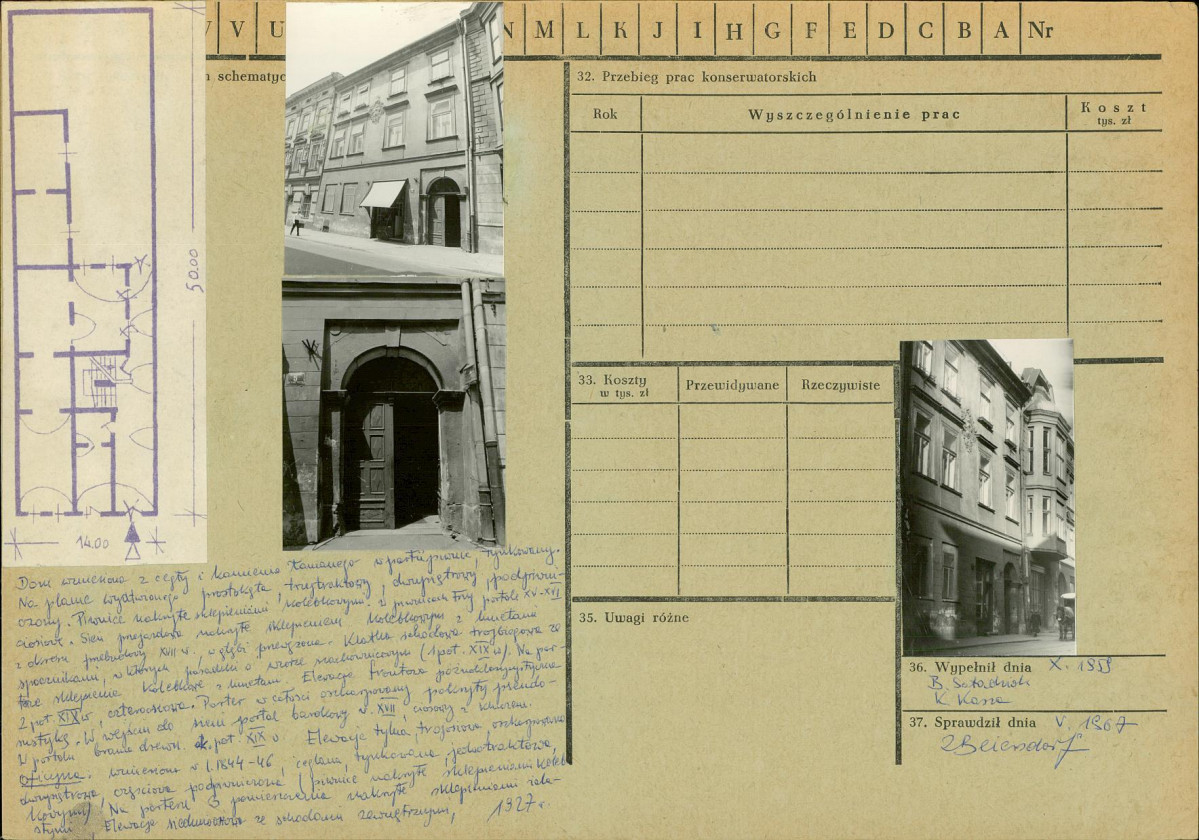 V V U N M L K J I H G F E D C B A Nr
schematyc
32. Przebieg prac konserwatorskich
Rok
Wyszczególnienie prac
Koszt
tys. zł
50.00
14.00
33. Koszty
w tys. zł
Przewidywane
Rzeczywiste
35. Uwagi różne
36. Wypełnił dnia X. 1959
K. Kasza
37. Sprawdził dnia V. 1967
ZBeiersdorf
Dom wzniesiony z cegły i kamienia łamanego w partii piwnic, tynkowany.
Na planie wydłużonego prostokąta, trzytraktowy, dwupiętrowy, podpiwni-
czony. Piwnice nakryte sklepieniami kolebkowymi. W piwnicach trzy portale XV-XVI
ciosowe. Sień przejazdowa nakryta sklepieniem kolebkowym z lunetami
z okresu przebudowy XVII w. w głębi przewężona. Klatka schodowa trójbiegowa ze
spocznikami, w których posadzki o wzorze szachownicowym (1 poł. XIX w). Na par-
terze sklepienia kolebkowe z lunetami. Elewacja frontowa
2 poł. XIX w, czteroosiowa. Parter w całości oszkarpowany pokryty pseudo-
W wejściu do sieni portal barokowy w. XVII, ciosowy z kluczem.
W portalu brama drewn. poł. XIX w Elewacja tylna, trójosiowa, oszkarpowana
oficyna. wzniesiona w l. 1844-46, ceglana, tynkowana, jednotraktowa,
dwupiętrowa, częściowo podpiwniczona (piwnice nakryte sklepieniami koleb
kowymi) Na parterze 3 pomieszczenia nakryte sklepieniami
Elewacje ze schodami zewnętrznymi, 1927 r.